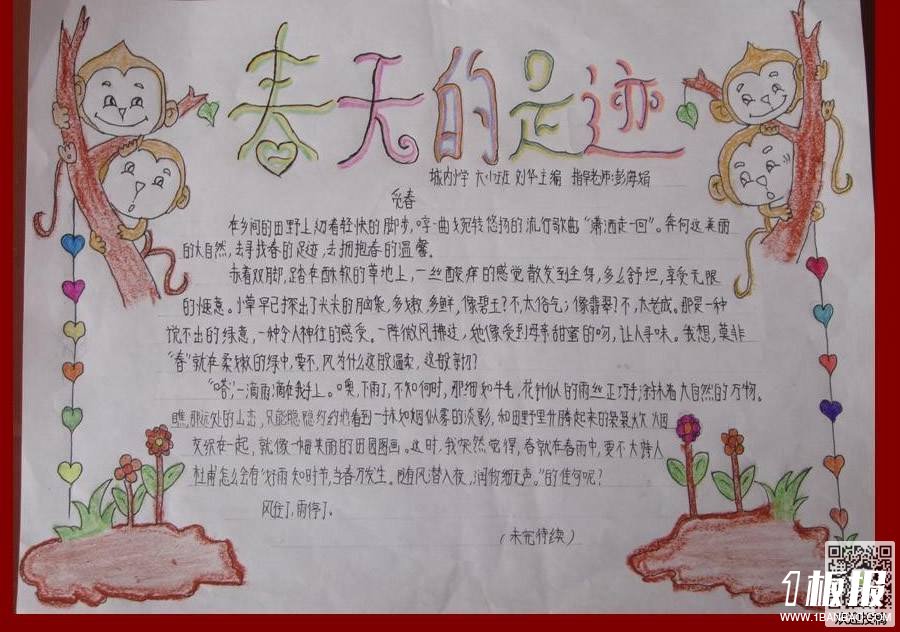 春天的足迹
城内小学 六(小)班 刘华主编 指导老师:彭海娟
觅春
在乡间的田野上切着轻快的脚步,哼一曲婉转悠扬的流行歌曲“潇洒走一回”。奔向这美丽
的大自然,去寻找春的足迹,去拥抱春的温馨。
赤着双脚,踏在酥软的草地上,一丝酸痒的感觉散发到全身,多么舒坦,享受无限
的惬意。小草早已探出了尖尖的脑袋,多嫩,多鲜,像碧玉?不,太俗气;像翡翠?不,太老成。那是一种
说不出的绿意,一种令人神往的感受。一阵微风拂过,她像受到母亲甜蜜的吻,让人寻味。我想,莫非
“春”就在柔嫩的绿中,要不,风为什么这般温柔,这般亲切?
“嗒”,一滴雨滴在我手上。噢,下雨了,不知何时,那细如牛毛,花针似的雨丝正巧手涂抹着大自然的万物。
瞧,那远处的山峦,只能隐隐约约地看到一抹如烟似雾的淡影,和田野里升腾起来的袅袅炊烟
交织在一起,就像一幅美丽的田园图画。这时,我突然觉得,春就在春雨中,要不大诗人
杜甫怎么会有“好雨知时节,当春乃发生。随风潜入夜,润物细无声。”的佳句呢?
风住了,雨停了。
(未完待续)
1板报
WWW.1BANBAO.COM
欢迎投稿